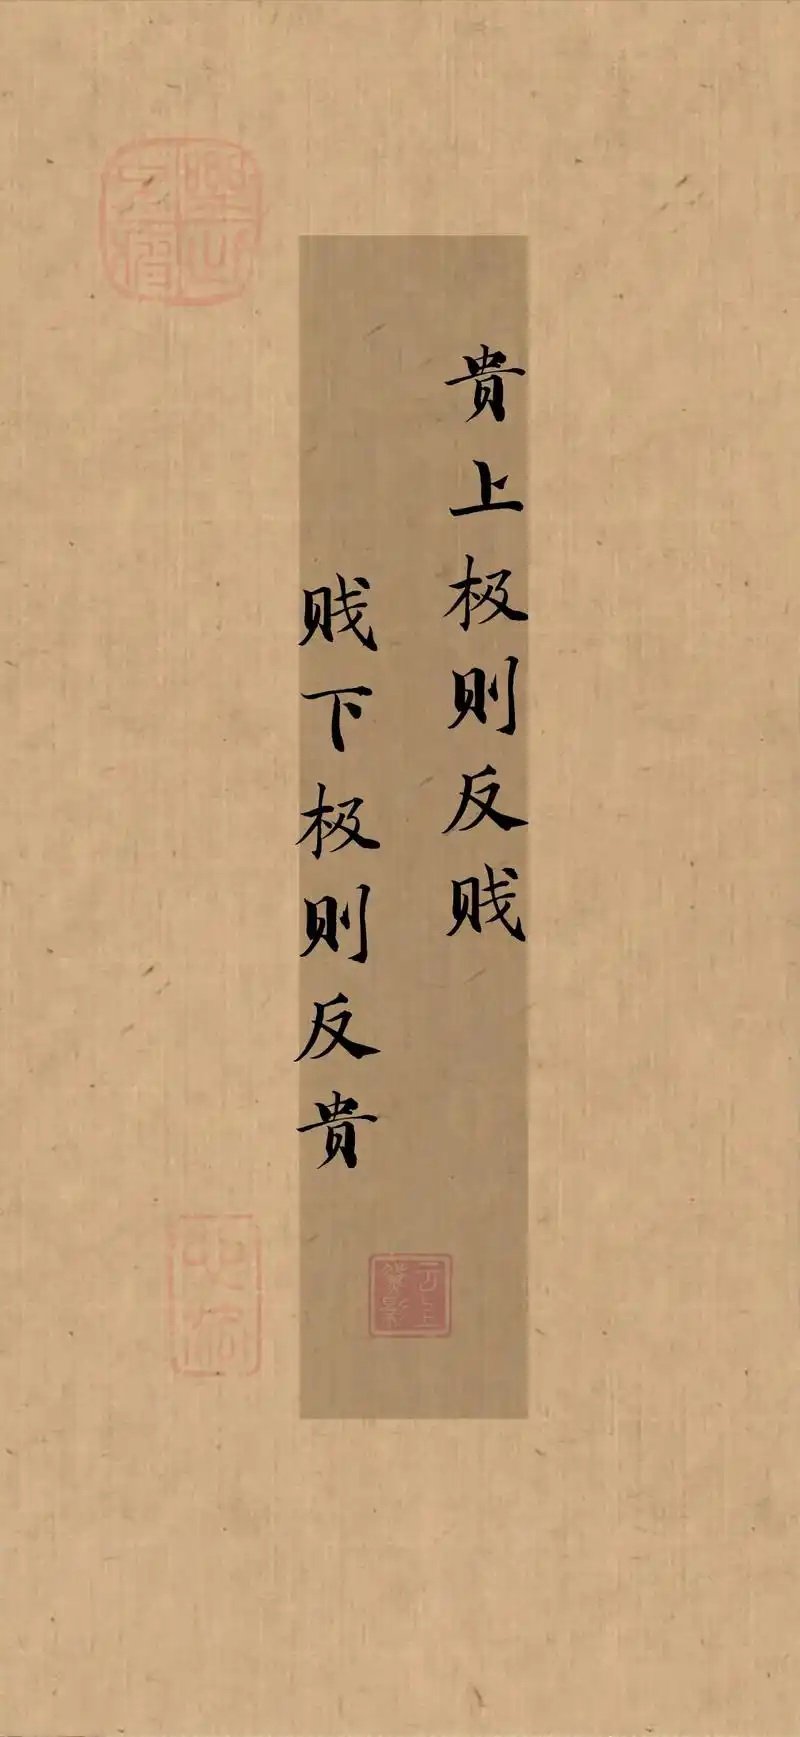 贵上极则反贱
贱下极则反贵